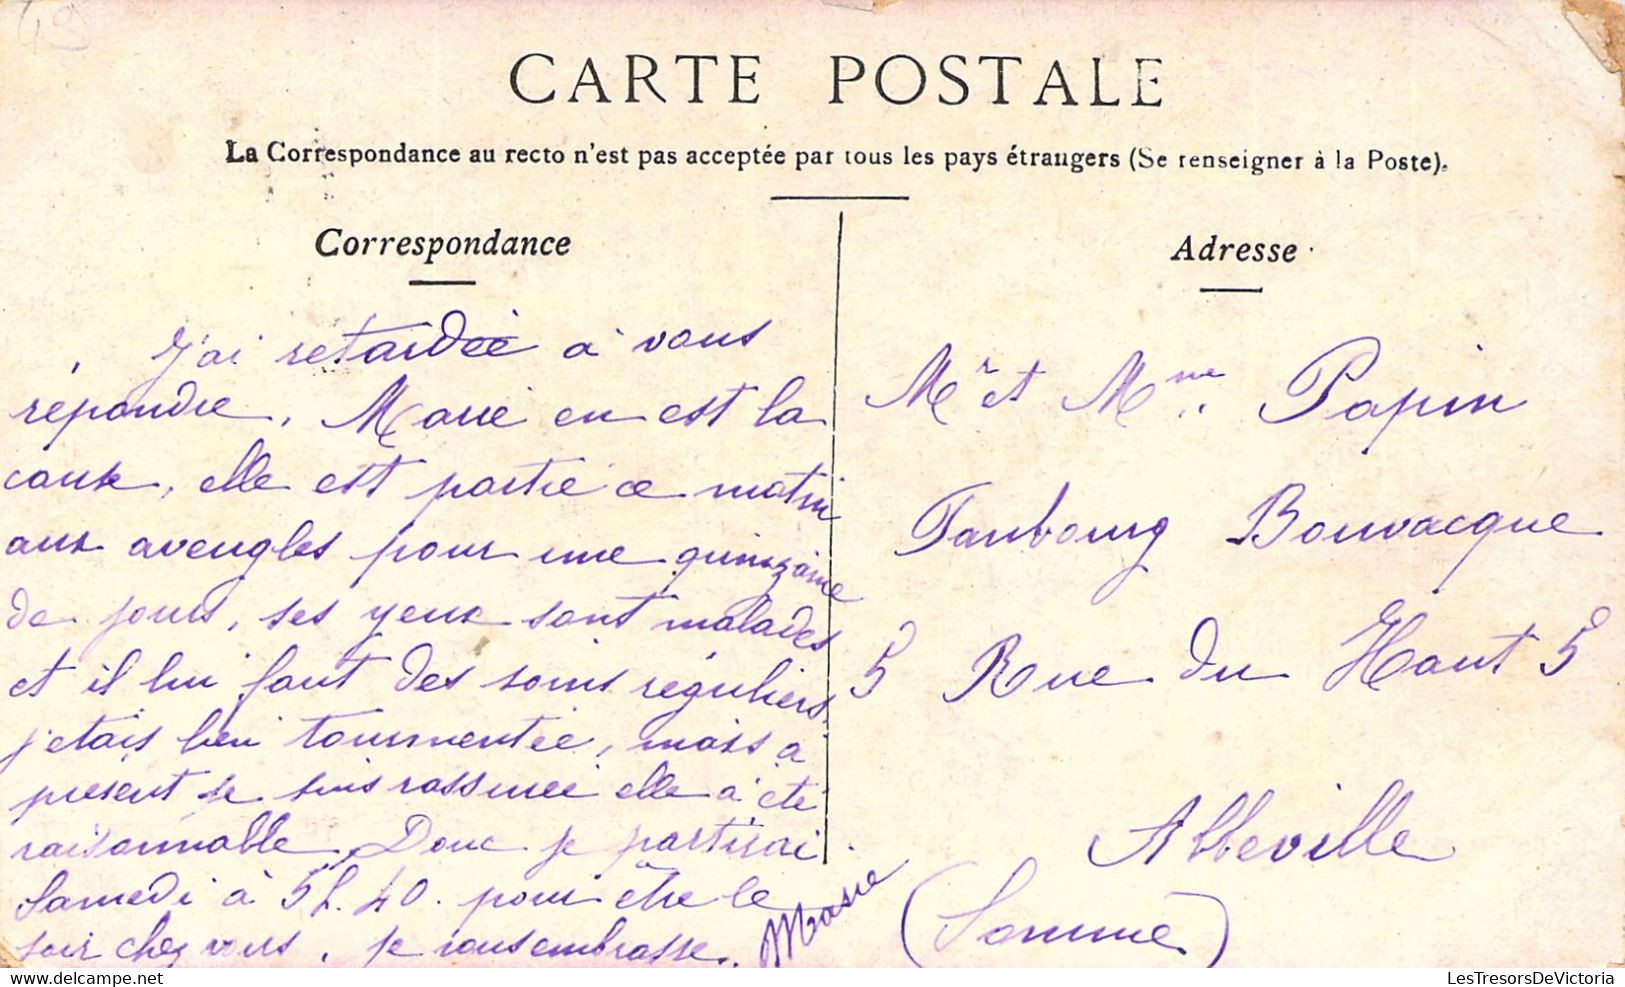 49
CARTE POSTALE
La Correspondance au recto n'est pas acceptée par tous les pays étrangers (Se renseigner à la Poste).
Correspondance
J'ai retardée à vous
répondre, Marie en est la
cause, elle est partie ce matin
aux aveugles pour une quinzaine
de jours, ses yeux sont malades
et il lui faut des soins réguliers,
j'etais bien tourmentée, mais a
présent je suis rassurée elle a été
raisonnable. Donc je partirai
Samedi à 5h.40. pour être le
soir chez vous. je vous embrasse.
Marie
Adresse
Mr et Mme Papin
Faubourg Bouvacque
5 Rue du Haut 5
Abbeville
(Somme)
LesTresorsDeVictoria